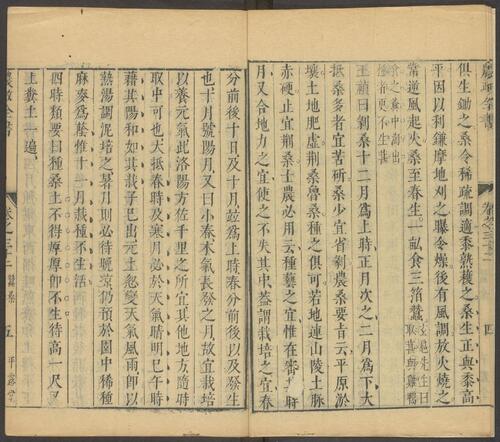 俱生鋤之桑令稀疏調適黍熟穫之桑生正與黍高
平因以利鐮摩地刈之曝令燥後有風調放火燒之
常逆風起火桑至春生一畝食三箔蠶
王禎曰剝桑十二月爲上時正月次之二月爲下大
抵桑多者宜苦斫桑少宜省剝農桑要旨云平原淤
壤土地肥虛荊桑魯桑種之俱可若地連山陵土脉
赤硬止宜荊桑士農必用云種藝之宜惟在審
時
月又合地力之宜使之不失其中蓋謂栽培之宜春
分前後十日及十月並爲上時春分前後以及發生
也十月號陽月又曰小春木氣長發之月故宜栽培
以養元氣此洛陽方佐千里之所宜其他地方隨時
取中可也大抵春時及寒月必於天氣晴明巳午時
藉其陽和如其栽子已出元土忽變天氣風雨卽以
熱湯調泥培之暑月則必待晚涼仍預於園中稀種
麻麥爲蔭惟十一月栽種不生活
四時類要曰種桑土不得厚厚卽不生待高一尺又
上糞土一遍
農政全書
卷之三十二
五
平露堂